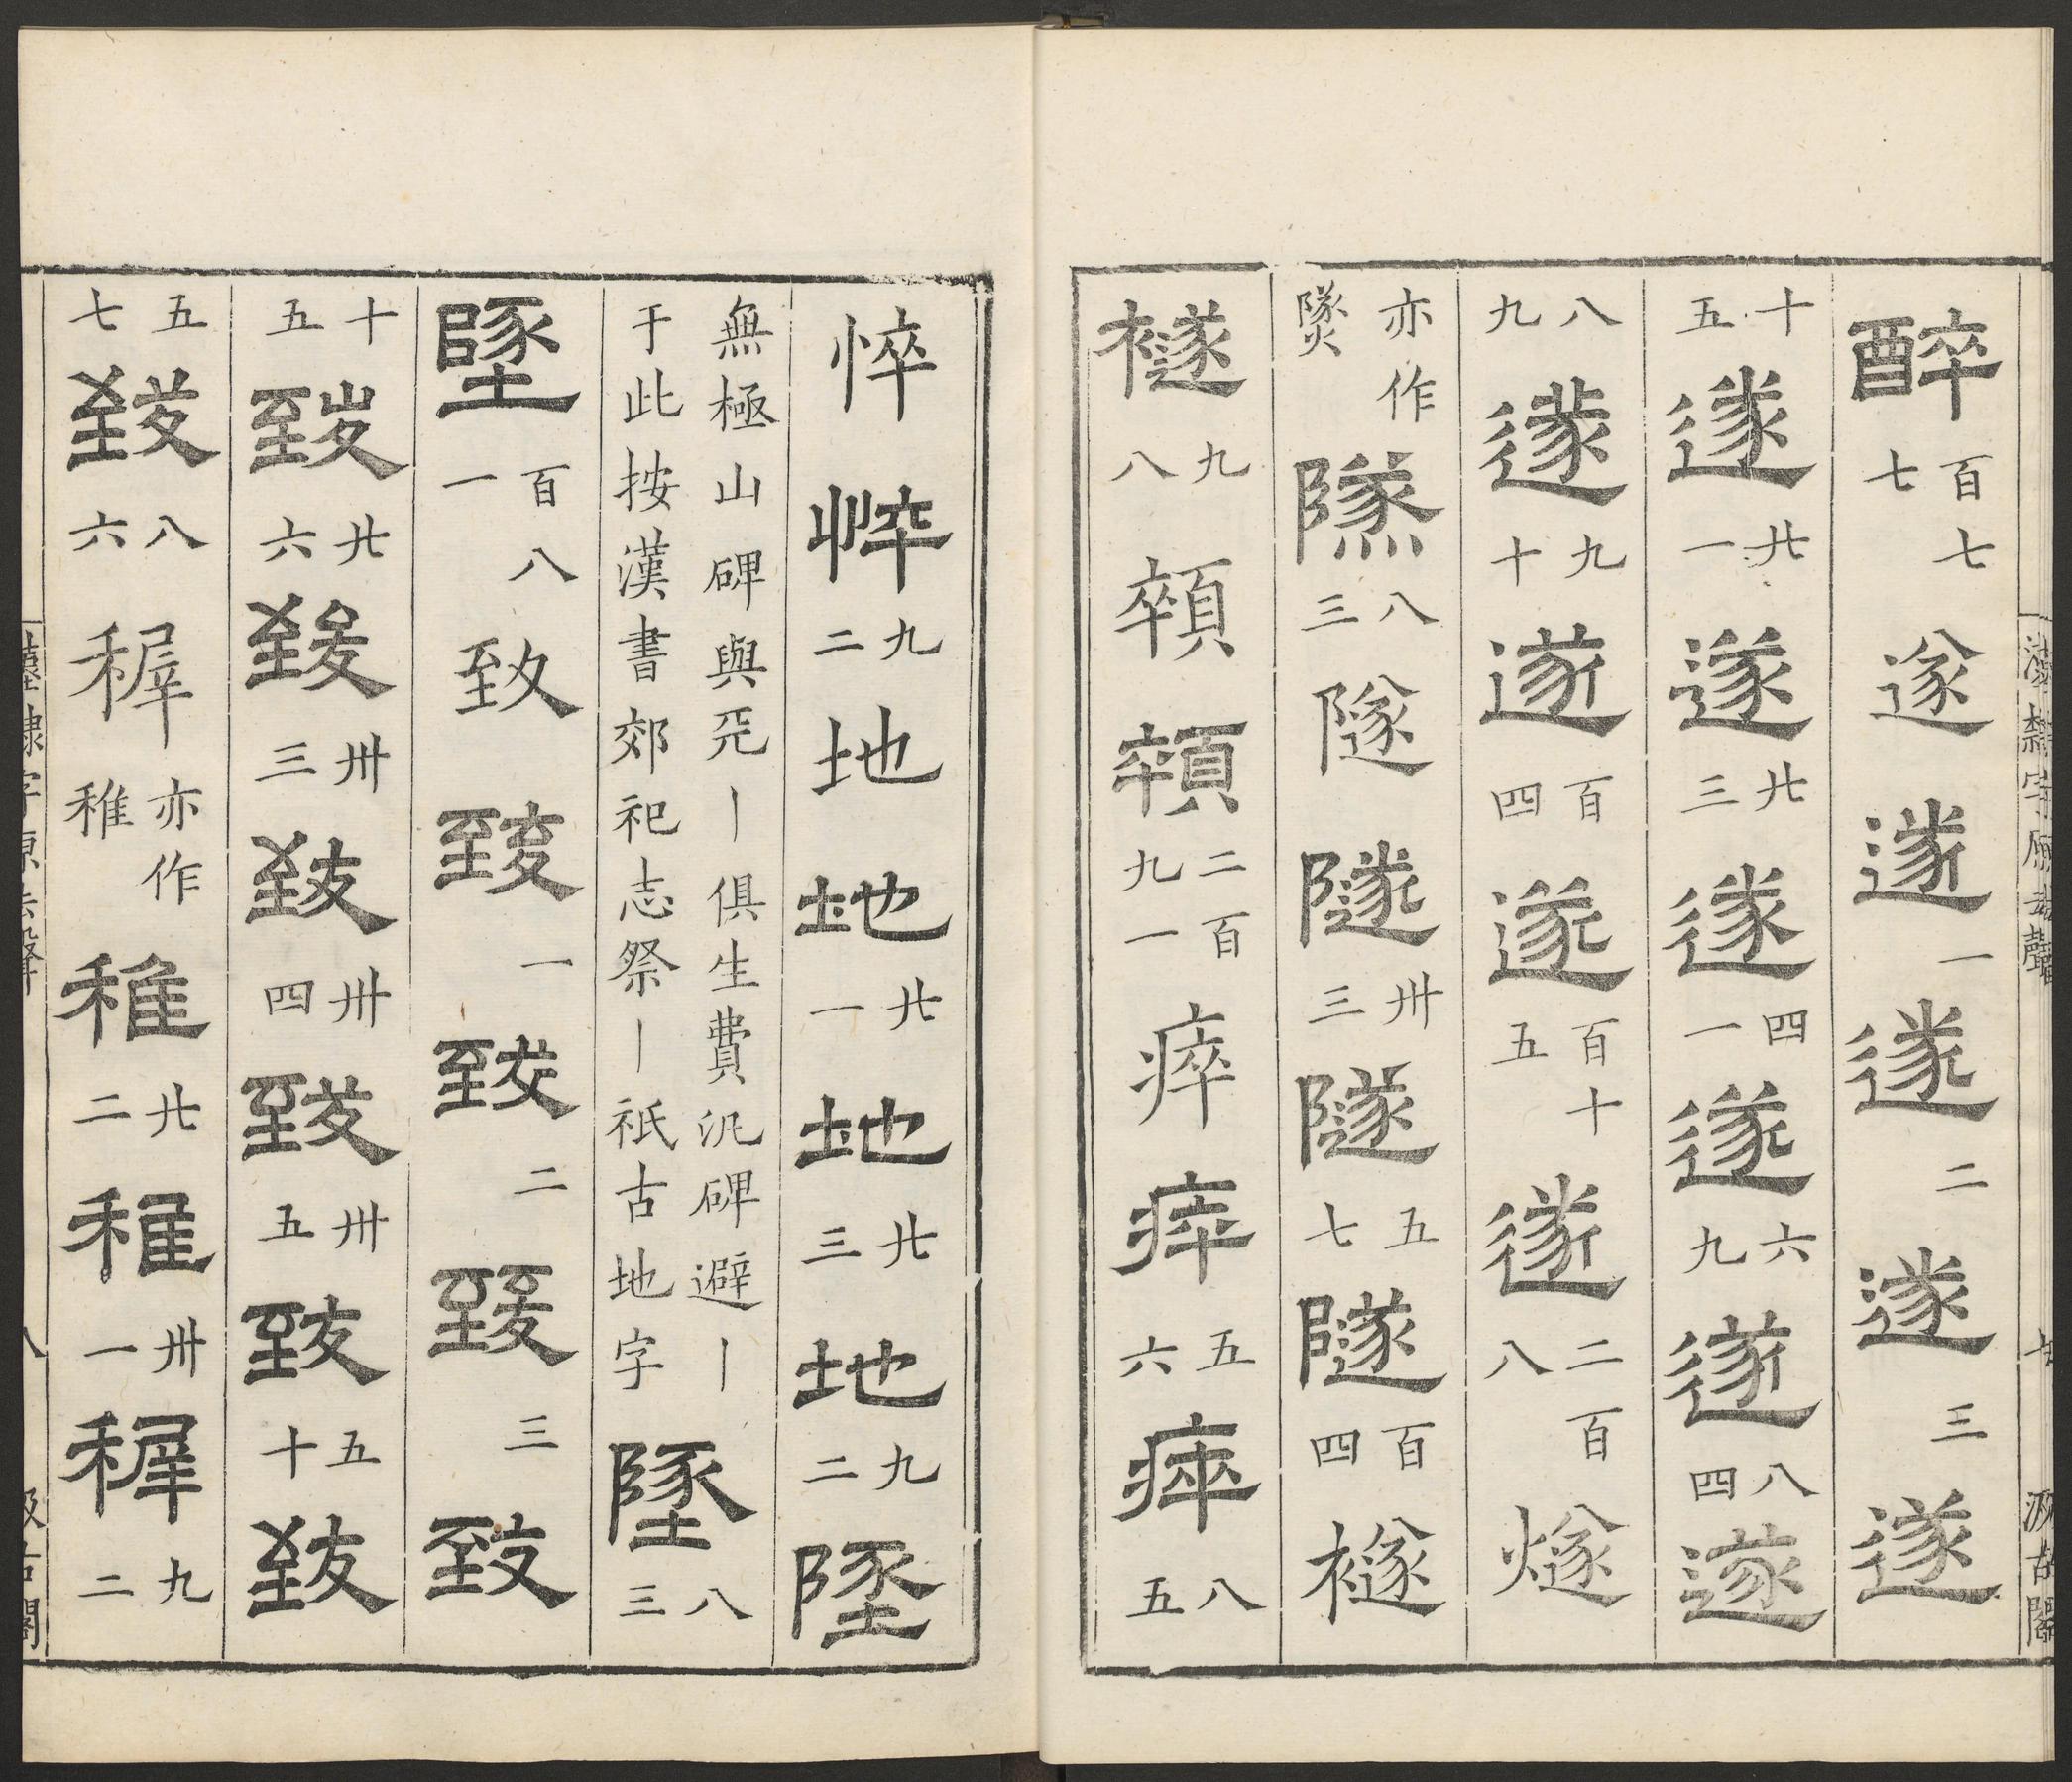 醉百七七遂遂一遂二遂三遂
十五遂廿一遂廿三遂四一遂六九遂八四遂
八九遂九十遂百四遂百十五遂二百八燧
亦作䥙八三隧隧卅三隧五七隧百四襚
襚九八顇顇二百九一瘁瘁五六瘁八五
漢隸字源去聲
七
汲古閣
悴悴九二地地廿一地廿三地九二墬
無極山碑與㒫丨俱生費汎碑避丨
于此按漢書郊祀志祭丨祇古地字
墬八三
墬百八一致致一致二致三致
十五致廿六致卅三致卅四致卅五致五十致
五七致八六稺亦作稚稚廿二稚卅一稺九二
漢隸字源去聲
八
汲古閣